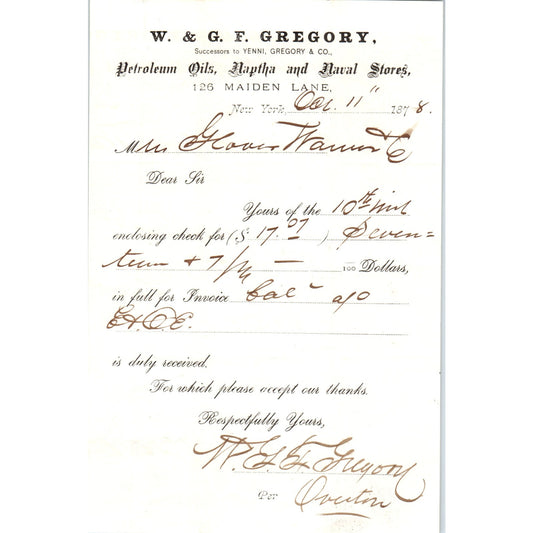 W. & G. F. GREGORY,
Successors to YENNI, GREGORY & CO.,
Petroleum Oils, Naptha and Naval Stores,
126 MAIDEN LANE,
New York Oct. 11" 1878.
Mrs Glover Warner & C
Dear Sir
Yours of the 10th inst
enclosing check for ($ 17.07 ) Seven=
teen + 7/ — 100 Dollars,
in full for Invoice Bal a/c
E. & O. E.
is duly received.
For which please accept our thanks.
Respectfully Yours,
W. G. F. Gregory
Per Overton